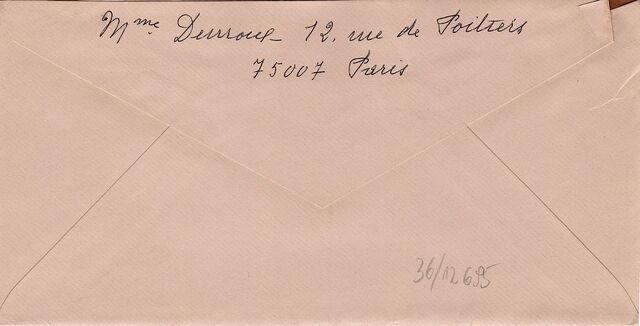 Mme Deuroul 12, rue de Poitiers
75007 Paris
36/12695